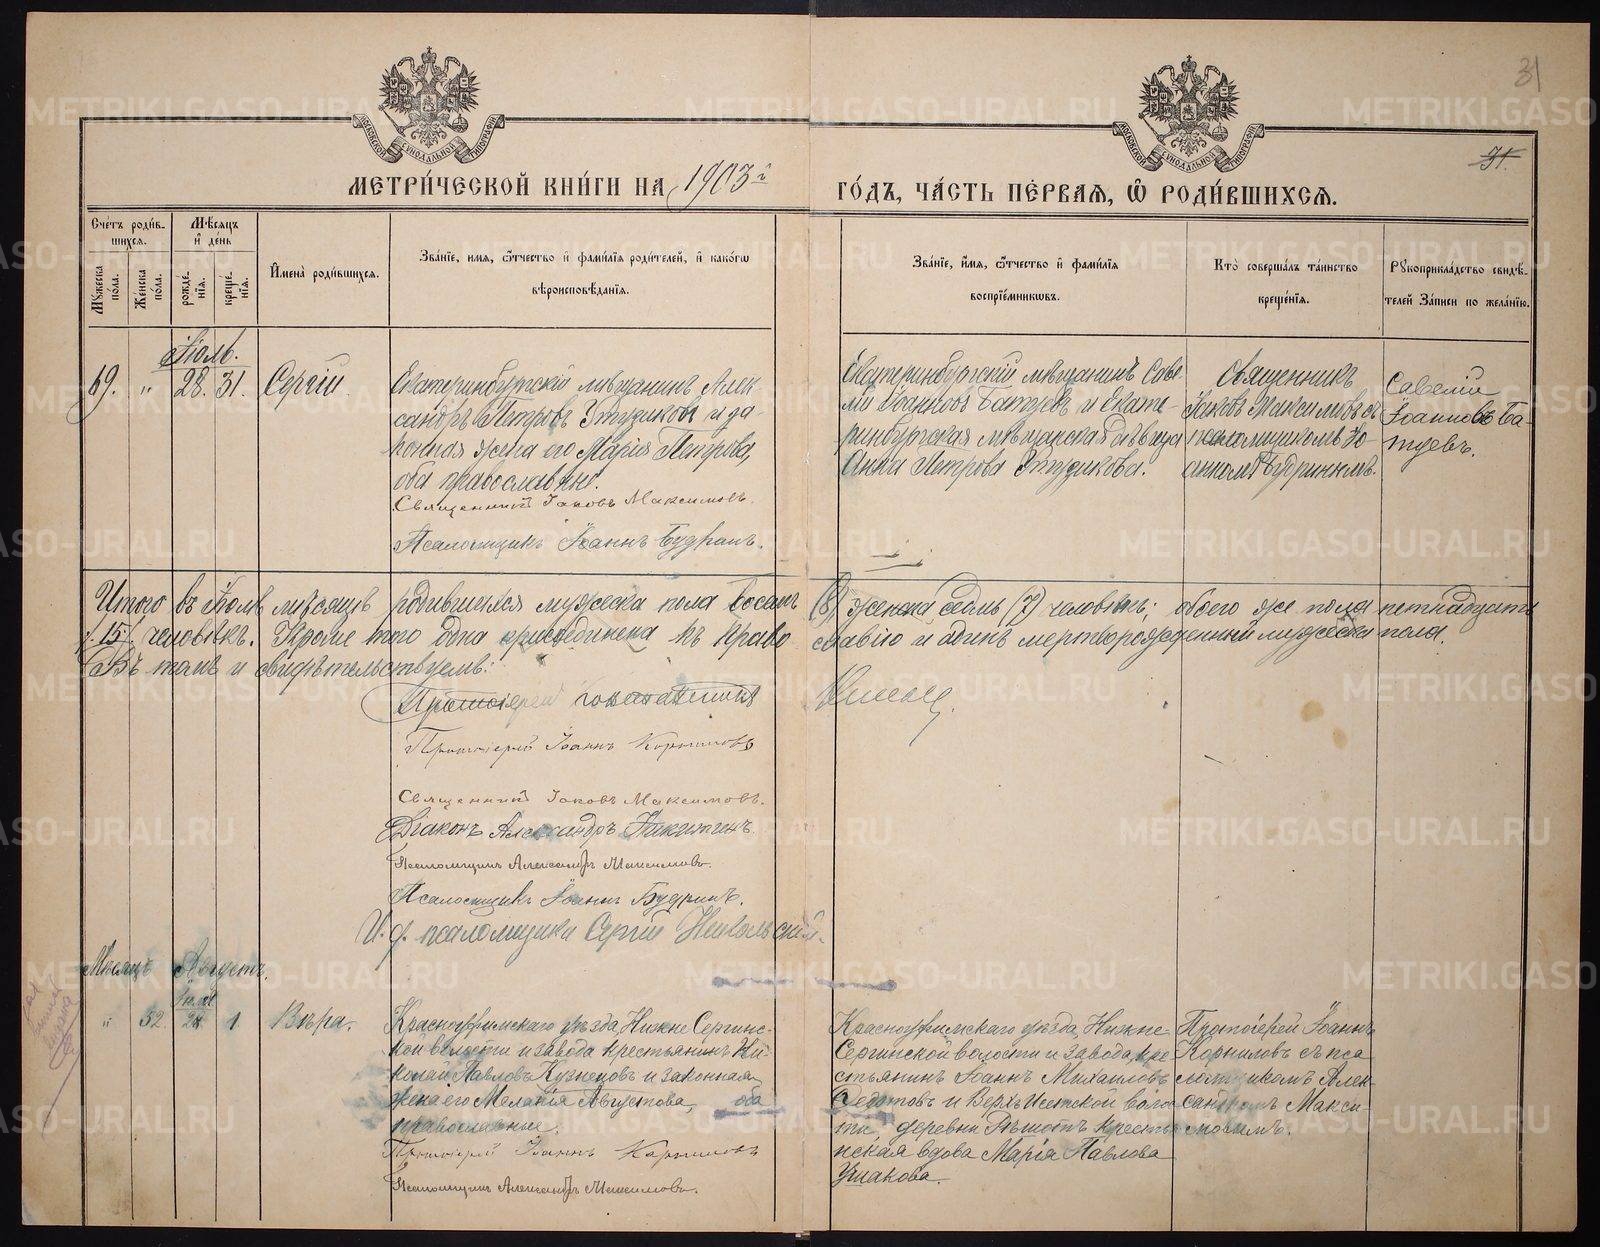 31
31.
МОСКОВСКОЙ СѴНОДАЛЬНОЙ ТИПОГРАФІИ
МОСКОВСКОЙ СѴНОДАЛЬНОЙ ТИПОГРАФІИ
МЕТРИ́ЧЕСКОЙ КНИ́ГИ НА 1903й ГО́ДЪ, ЧА́СТЬ ПЕ́РВАЯ, Ѡ РОДИ́ВШИХСЯ.
Сче́тъ роди́в-
шихся.
Мѣ́сяцъ
и҆ де́нь
Му́жеска
по́ла.
Же́нска
по́ла.
рожде́-
нія.
креще́-
нія.
И҆мена̀ роди́вшихся.
Зва́ніе, и҆мя, ѻ҆́тчество и҆ фами́лія роди́телей, и҆ како́гѡ
вѣроисповѣ́данія.
Зва́ніе, и҆́мя, ѻ҆́тчество и҆ фами́лія
воспріе́мникѡвъ.
Кто̀ соверша́лъ та́инство
креще́нія.
Рукоприкла́дство свидѣ́-
телей За́писи по жела́нію.
Іюль.
69. " 28. 31. Сергій
Екатеринбургскій мѣщанинъ Алек-
сандръ Петровъ и за-
конная жена его Марія Петрова,
оба православные.
Священникъ Іаковъ Максимовъ.
Псаломщикъ Іоаннъ Будринъ.
Екатеринбургскій мѣщанинъ Саве-
лій Іоанновъ Батуевъ и Екате-
ринбургская мѣщанская дѣвица
Анна Петрова
Священникъ
Іаковъ Максимовъ съ
псаломщикомъ Іо-
анномъ Будринымъ.
Савелій
Іоанновъ Ба-
туевъ.
Итого въ Іюлѣ мѣсяцѣ родившихся мужеска пола восемь (8), женска семь (7) человѣкъ; обоего же пола пятнадцать
(15) человѣкъ. Кромѣ того одна присоединена къ право славію и одинъ мертворожденный мужеска пола.
Въ томъ и свидѣтельствуемъ:
Протоіерей
Протоіерей Іоаннъ Корниловъ
Священникъ Іаковъ Максимовъ.
Діаконъ Александръ
Псаломщикъ Александръ Максимовъ.
Псаломщикъ Іоаннъ Будринъ.
И. д. псаломщика Сергій Никольскій.
Мѣсяцъ Августъ.
Іюля
" 52. 28 1 Вѣра.
Красноуфимскаго уѣзда, Нижне Сергинс-
кой волости и завода крестьянинъ Ни-
колай Павловъ Кузнецовъ и законная
жена его Меланія Августова, оба
православные.
Протоіерей Іоаннъ Корниловъ
Псаломщикъ Александръ Максимовъ.
Красноуфимскаго уѣзда, Нижне-
Сергинской волости и завода, кре
стьянинъ Іоаннъ Михаиловъ
Федотовъ и Верхъ Исетской волос
ти, деревни Рѣшотъ крестья
нская вдова Марія Павлова
Ушакова.
Протоіерей Іоаннъ
Корниловъ съ пса
ломщикомъ Алек-
сандромъ Макси-
мовымъ.
METRIKI.GASO-URAL.RU